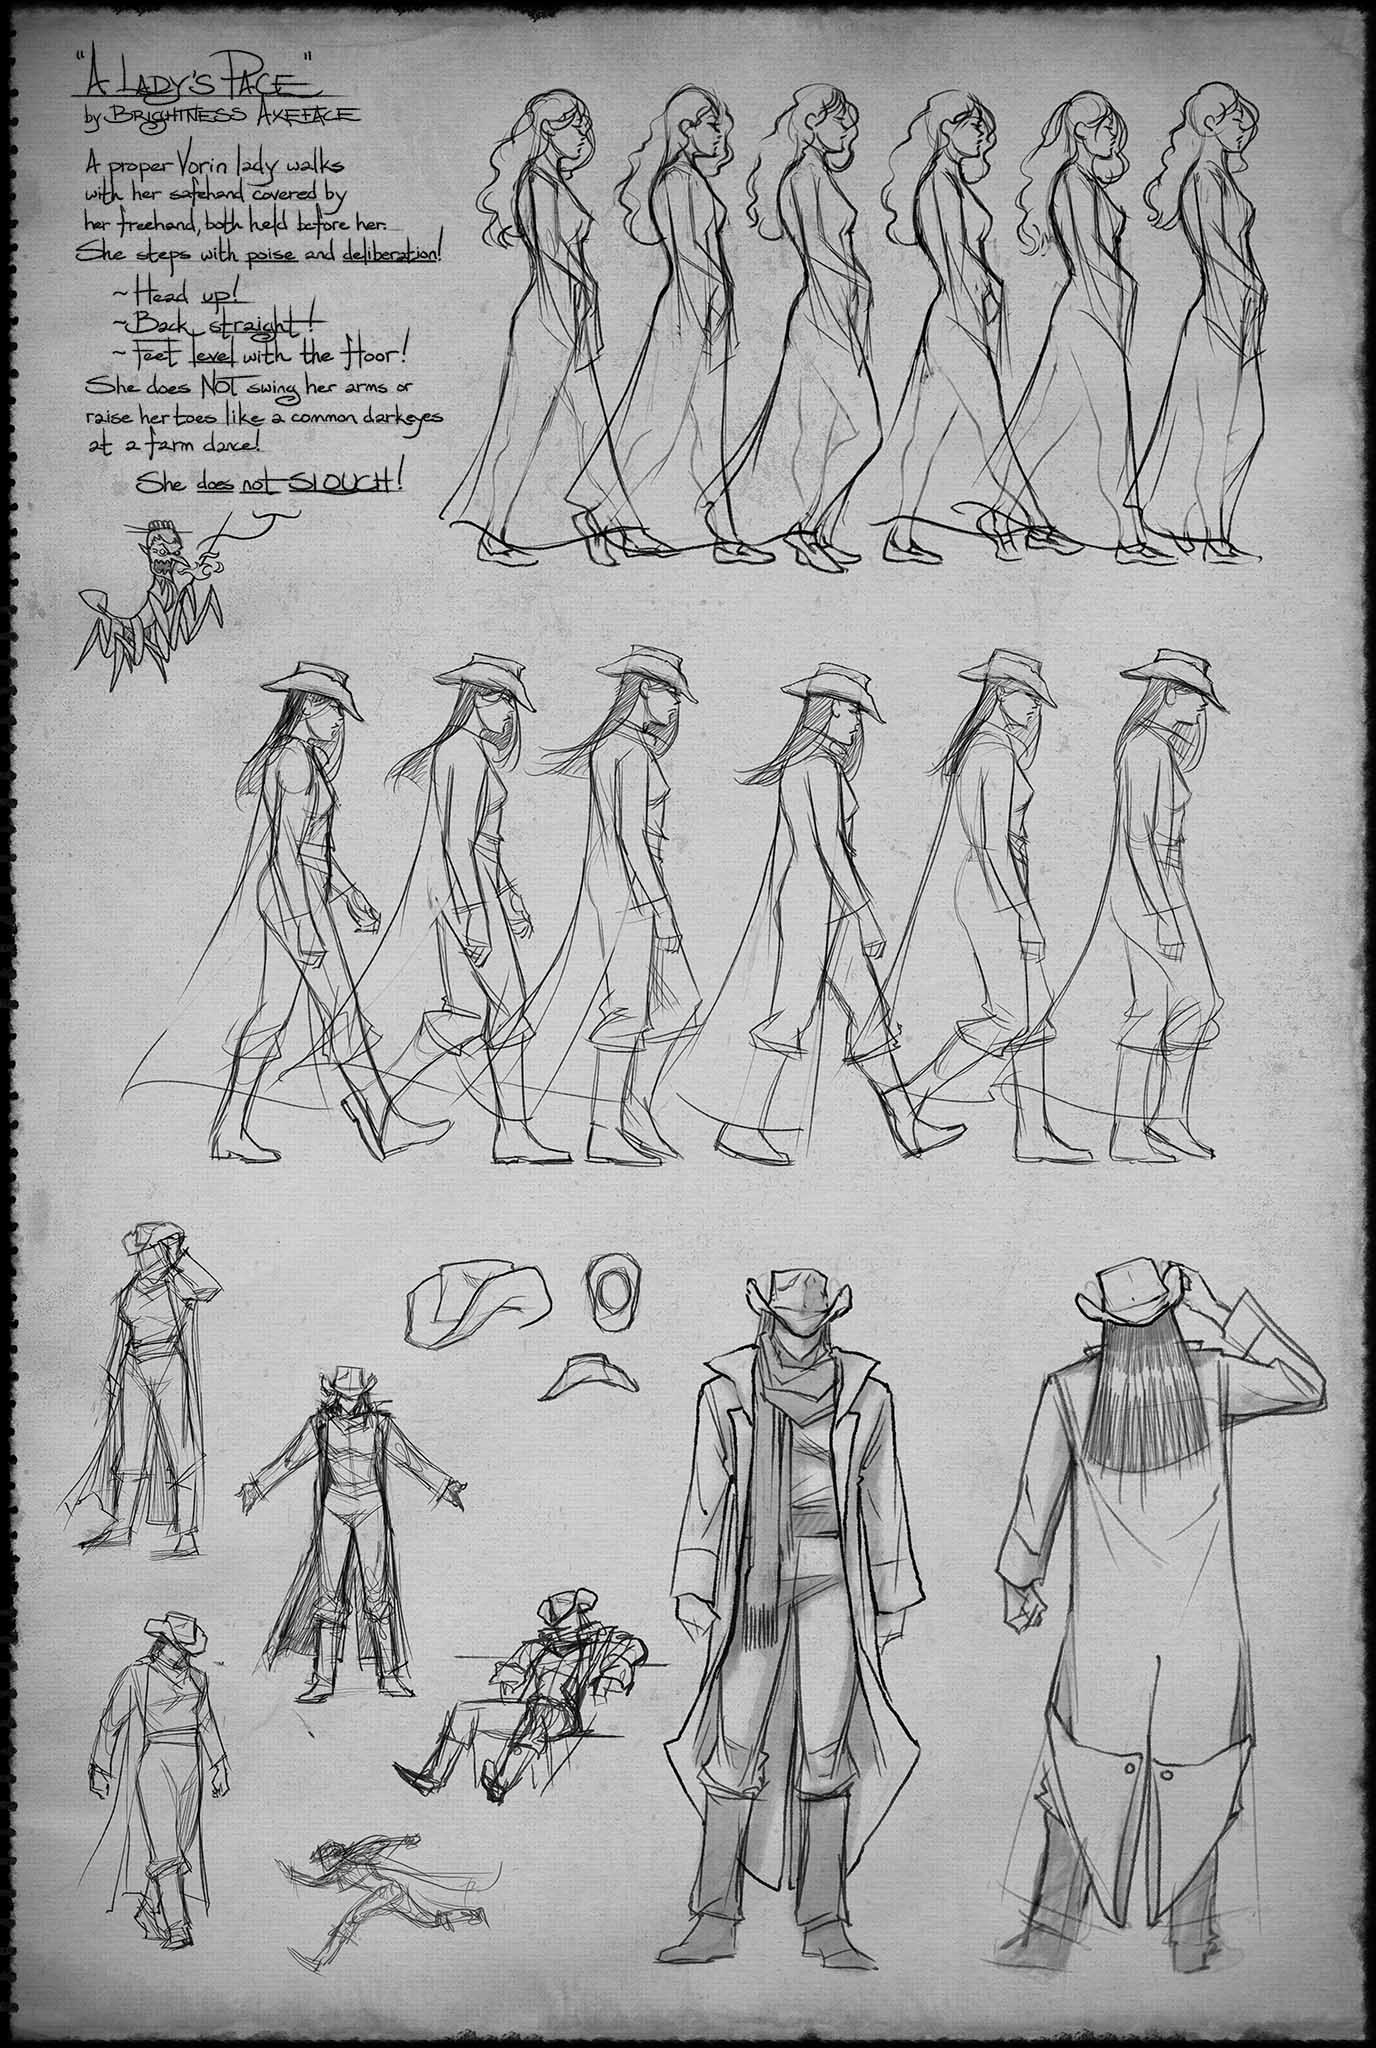 "A LADY'S PACE"
by BRIGHTNESS AXEFACE
A proper Vorin lady walks
with her safehand covered by
her freehand, both held before her.
She steps with poise and deliberation!
~ Head up!
~ Back straight!
~ Feet level with the floor!
She does NOT swing her arms or
raise her toes like a common darkeyes
at a farm dance!
She does not SLOUCH!